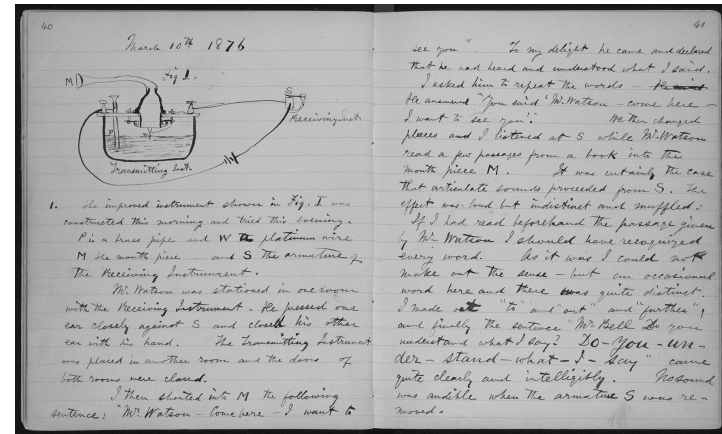 40
March 10th 1876
Fig 1.
M
S
Receiving Inst.
P
W
Transmitting Inst.
1. The improved instrument shown in Fig. I was
constructed this morning and tried this evening.
P is a brass pipe and W the platinum wire
M the mouth piece — and S the armature of
the Receiving Instrument.
Mr. Watson was stationed in one room
with the Receiving Instrument. He pressed one
ear closely against S and closed his other
ear with his hand. The Transmitting Instrument
was placed in another room and the doors of
both rooms were closed.
I then shouted into M the following
sentence: "Mr. Watson — Come here — I want to
41
see you". To my delight he came and declared
that he had heard and understood what I said.
I asked him to repeat the words —
He answered "You said 'Mr. Watson — come here —
I want to see you'." We then changed
places and I listened at S while Mr. Watson
read a few passages from a book into the
mouth piece M. It was certainly the case
that articulate sounds proceeded from S. The
effect was loud but indistinct and muffled.
If I had read beforehand the passage given
by Mr. Watson I should have recognized
every word. As it was I could not
make out the sense — but an occasional
word here and there was quite distinct.
I made out "to" and "out" and "further";
and finally the sentence "Mr. Bell Do you
understand what I say? Do — you — un —
der — stand — what — I — say" came
quite clearly and intelligibly. No sound
was audible when the armature S was re-
moved.